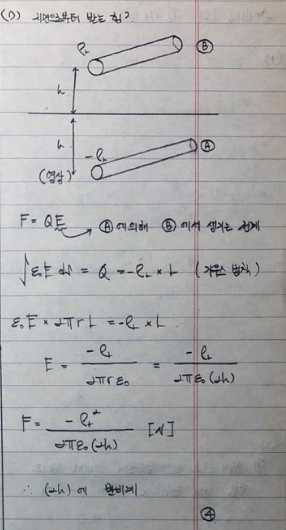 (1) 지면으로부터 받는 힘?
ρL
Ⓑ
h
h
-ρL
Ⓐ
(영상)
F = QE
Ⓐ에 의해 Ⓑ에서 생기는 전계
∫ε₀E ds = Q = -ρL × L (가우스 법칙)
ε₀E × 2πrL = -ρL × L
E = -ρL / 2πrε₀ = -ρL / 2πε₀(2h)
F = -ρL² / 2πε₀(2h) [N]
∴ (2h)에 반비례
④